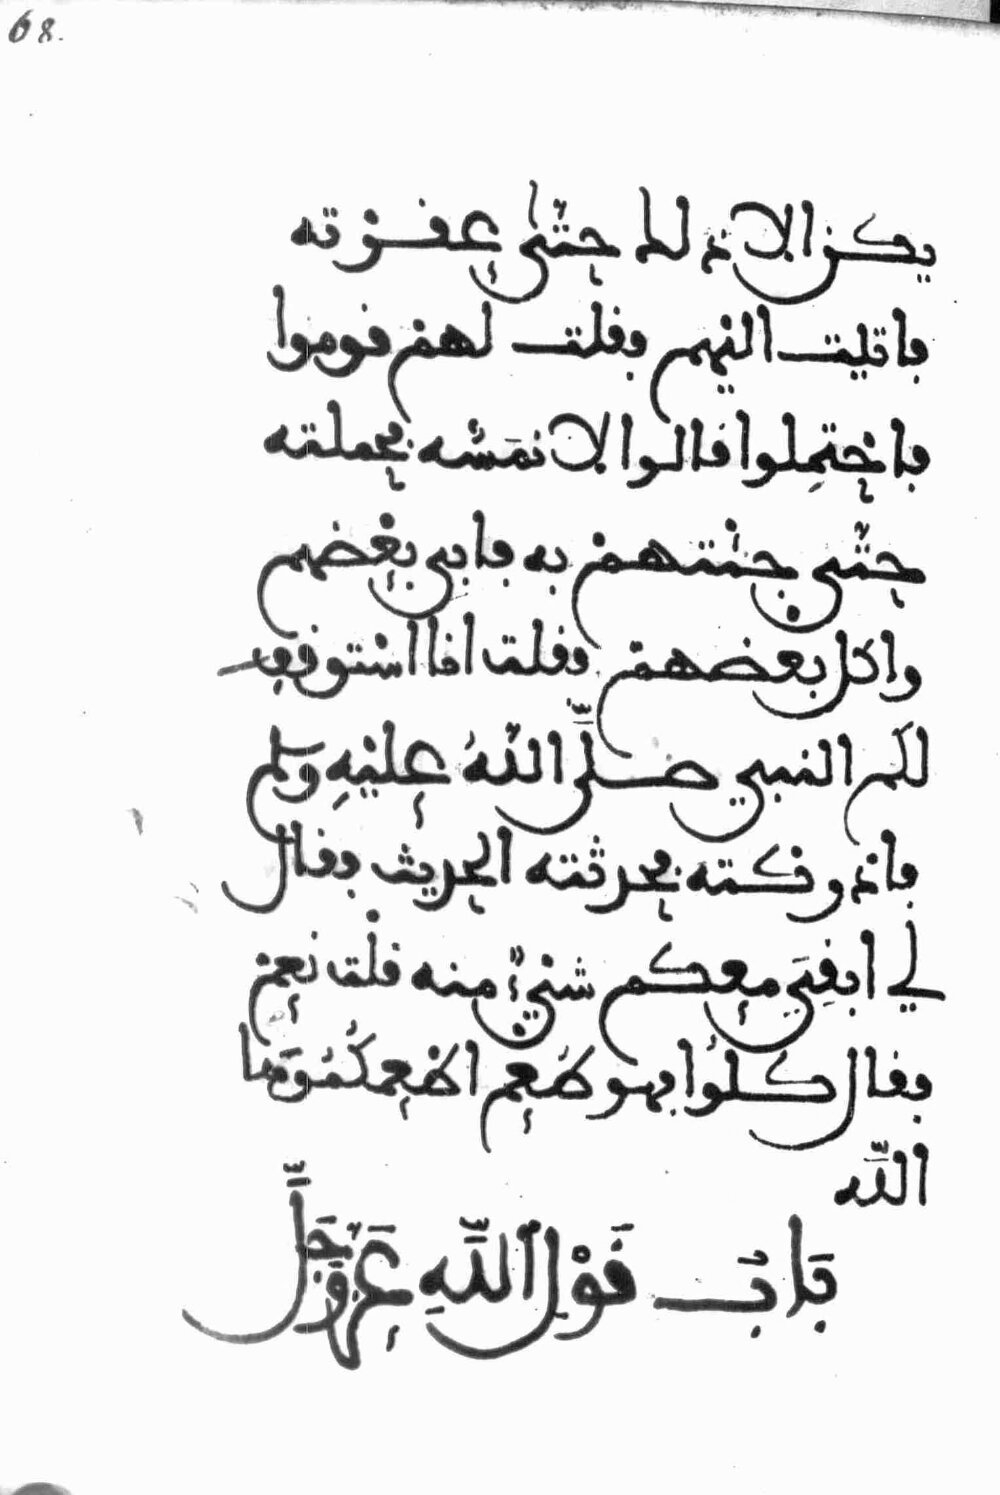 68.
يكن الا ذلك حتى عقرته
فاتيت اليهم فقلت لهم قوموا
فاحتملوا قالوا لا نمسه فحملته
حتى جئتهم به فابى بعضهم
واكل بعضهم فقلت انا استوقف
لكم النبي صَلَّى اللهُ عَلَيْهِ وَسَلم
فادركته فحدثته الحديث فقال
لي ابقِيَ معكم شيءٌ منه قلْت نعم
فقال كلُوا فهو طُعم اطعمكُمُوهَا
اللَّه
بَابُ قَوْلِ اللَّهِ عَزَّ وَجَلَّ